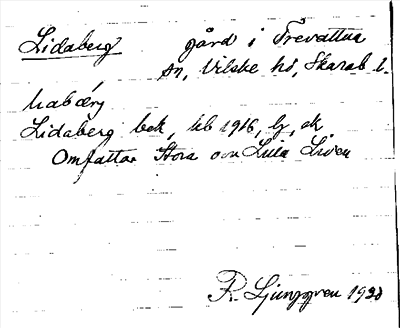 Lidaberg gård i Trevattna
sn, Vilske hd, Skarab. l.
Lidaberg bek, kb 1916, lz, ek
Omfattar Stora och Lilla Liden
R. Ljunggren 1928